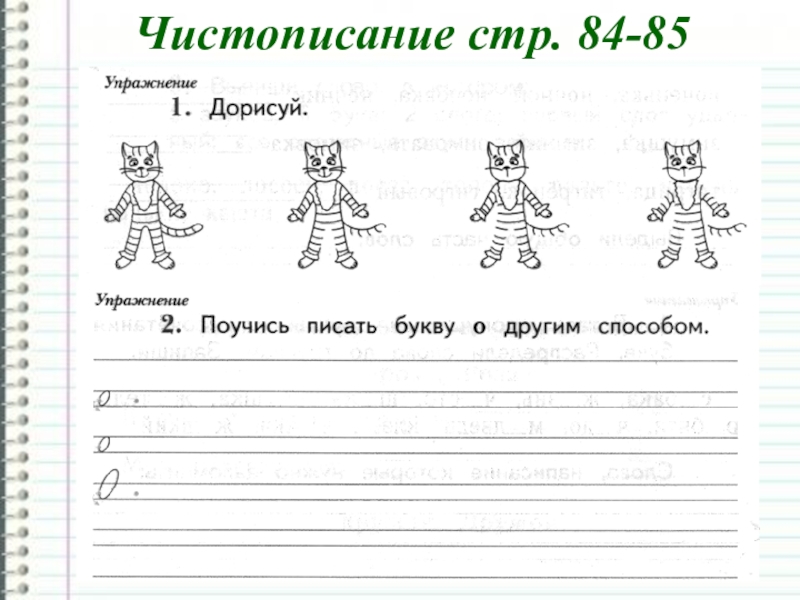 Чистописание стр. 84-85
Упражнение
1. Дорисуй.
Упражнение
2. Поучись писать букву о другим способом.
о .
о
О .